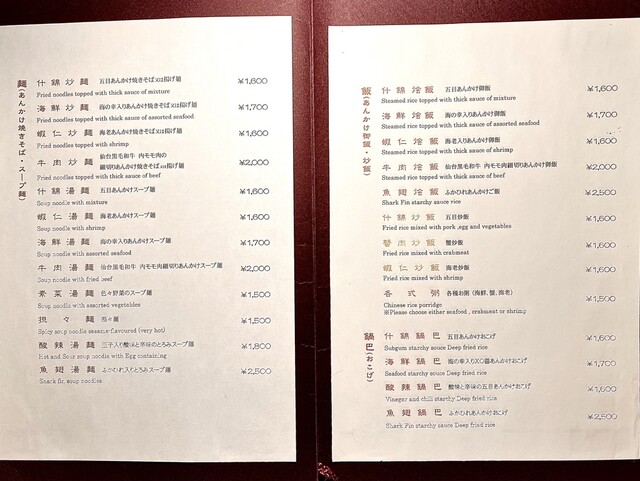 麺(あんかけ焼きそば・スープ麺)
什錦炒麺 五目あんかけ焼きそば又は揚げ麺 ¥1,600
Fried noodles topped with thick sauce of mixture
海鮮炒麺 海の幸入りあんかけ焼きそば又は揚げ麺 ¥1,700
Fried noodles topped with thick sauce of assorted seafood
蝦仁炒麺 海老あんかけ焼きそば又は揚げ麺 ¥1,600
Fried noodles topped with shrimp
牛肉炒麺 仙台黒毛和牛 内モモ肉の
細切りあんかけ焼きそば又は揚げ麺 ¥2,000
Fried noodles topped with thick sauce of beef
什錦湯麺 五目あんかけスープ麺 ¥1,600
Soup noodle with mixture
蝦仁湯麺 海老あんかけスープ麺 ¥1,600
Soup noodle with shrimp
海鮮湯麺 海の幸入りあんかけスープ麺 ¥1,700
Soup noodle with assorted seafood
牛肉湯麺 仙台黒毛和牛 内モモ肉細切りあんかけスープ麺 ¥2,000
Soup noodle with fried beef
素菜湯麺 色々野菜のスープ麺 ¥1,500
Soup noodle with assorted vegetables
担々麺 担々麺 ¥1,500
Spicy soup noodle sesame-flavoured (very hot)
酸辣湯麺 三子入り酸味と辛味のとろみスープ麺 ¥1,800
Hot and Sour soup noodle with Egg containing
魚翅湯麺 ふかひれ入りとろみスープ麺 ¥2,500
Shark fin soup noodles
飯(あんかけ御飯・炒飯)
什錦烩飯 五目あんかけ御飯 ¥1,600
Steamed rice topped with thick sauce of mixture
海鮮烩飯 海の幸入りあんかけ御飯 ¥1,700
Steamed rice topped with thick sauce of assorted seafood
蝦仁烩飯 海老入りあんかけ御飯 ¥1,600
Steamed rice topped with thick sauce of shrimp
牛肉烩飯 仙台黒毛和牛 内モモ肉細切りあんかけ御飯 ¥2,000
Steamed rice topped with thick sauce of beef
魚翅烩飯 ふかひれあんかけご飯 ¥2,500
Shark Fin starchy sauce rice
什錦炒飯 五目炒飯 ¥1,600
Fried rice mixed with pork ,egg and vegetables
蟹肉炒飯 蟹炒飯 ¥1,600
Fried rice mixed with crabmeat
蝦仁炒飯 海老炒飯 ¥1,600
Fried rice mixed with shrimp
各式粥 各種お粥 (海鮮、蟹、海老) ¥1,500
Chinese rice porridge
※Please choose either seafood , crabmeat or shrimp
鍋巴(おこげ)
什錦鍋巴 五目あんかけおこげ ¥1,600
Subgum starchy sauce Deep fried rice
海鮮鍋巴 海の幸入りXO醤あんかけおこげ ¥1,700
Seafood starchy sauce Deep fried rice
酸辣鍋巴 酸味と辛味の五目あんかけおこげ ¥1,600
Vinegar and chili starchy Deep fried rice
魚翅鍋巴 ふかひれあんかけおこげ ¥2,500
Shark Fin starchy sauce Deep fried rice